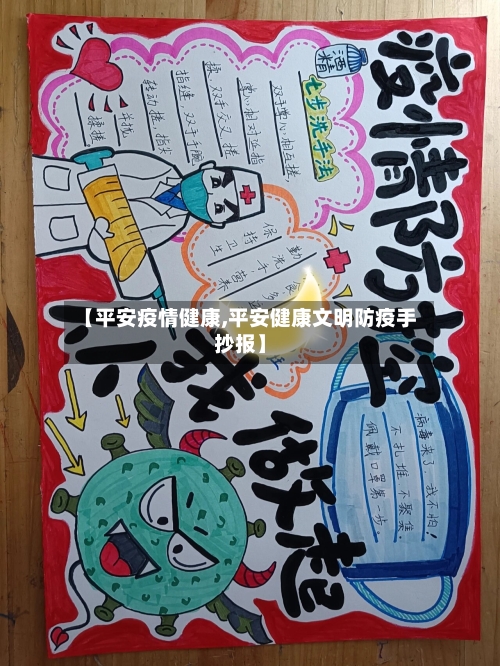 疫情防控
我做起
酒精
七步洗手法
双手掌心相互搓,
搓 双手交叉搓
指缝 双手手腕
转动搓 指尖
揉搓
勤洗手
保持卫生
营养
【平安疫情健康,平安健康文明防疫手
抄报】
病毒来了,我不怕!
不扎堆 不聚集.
佩戴口罩第一步